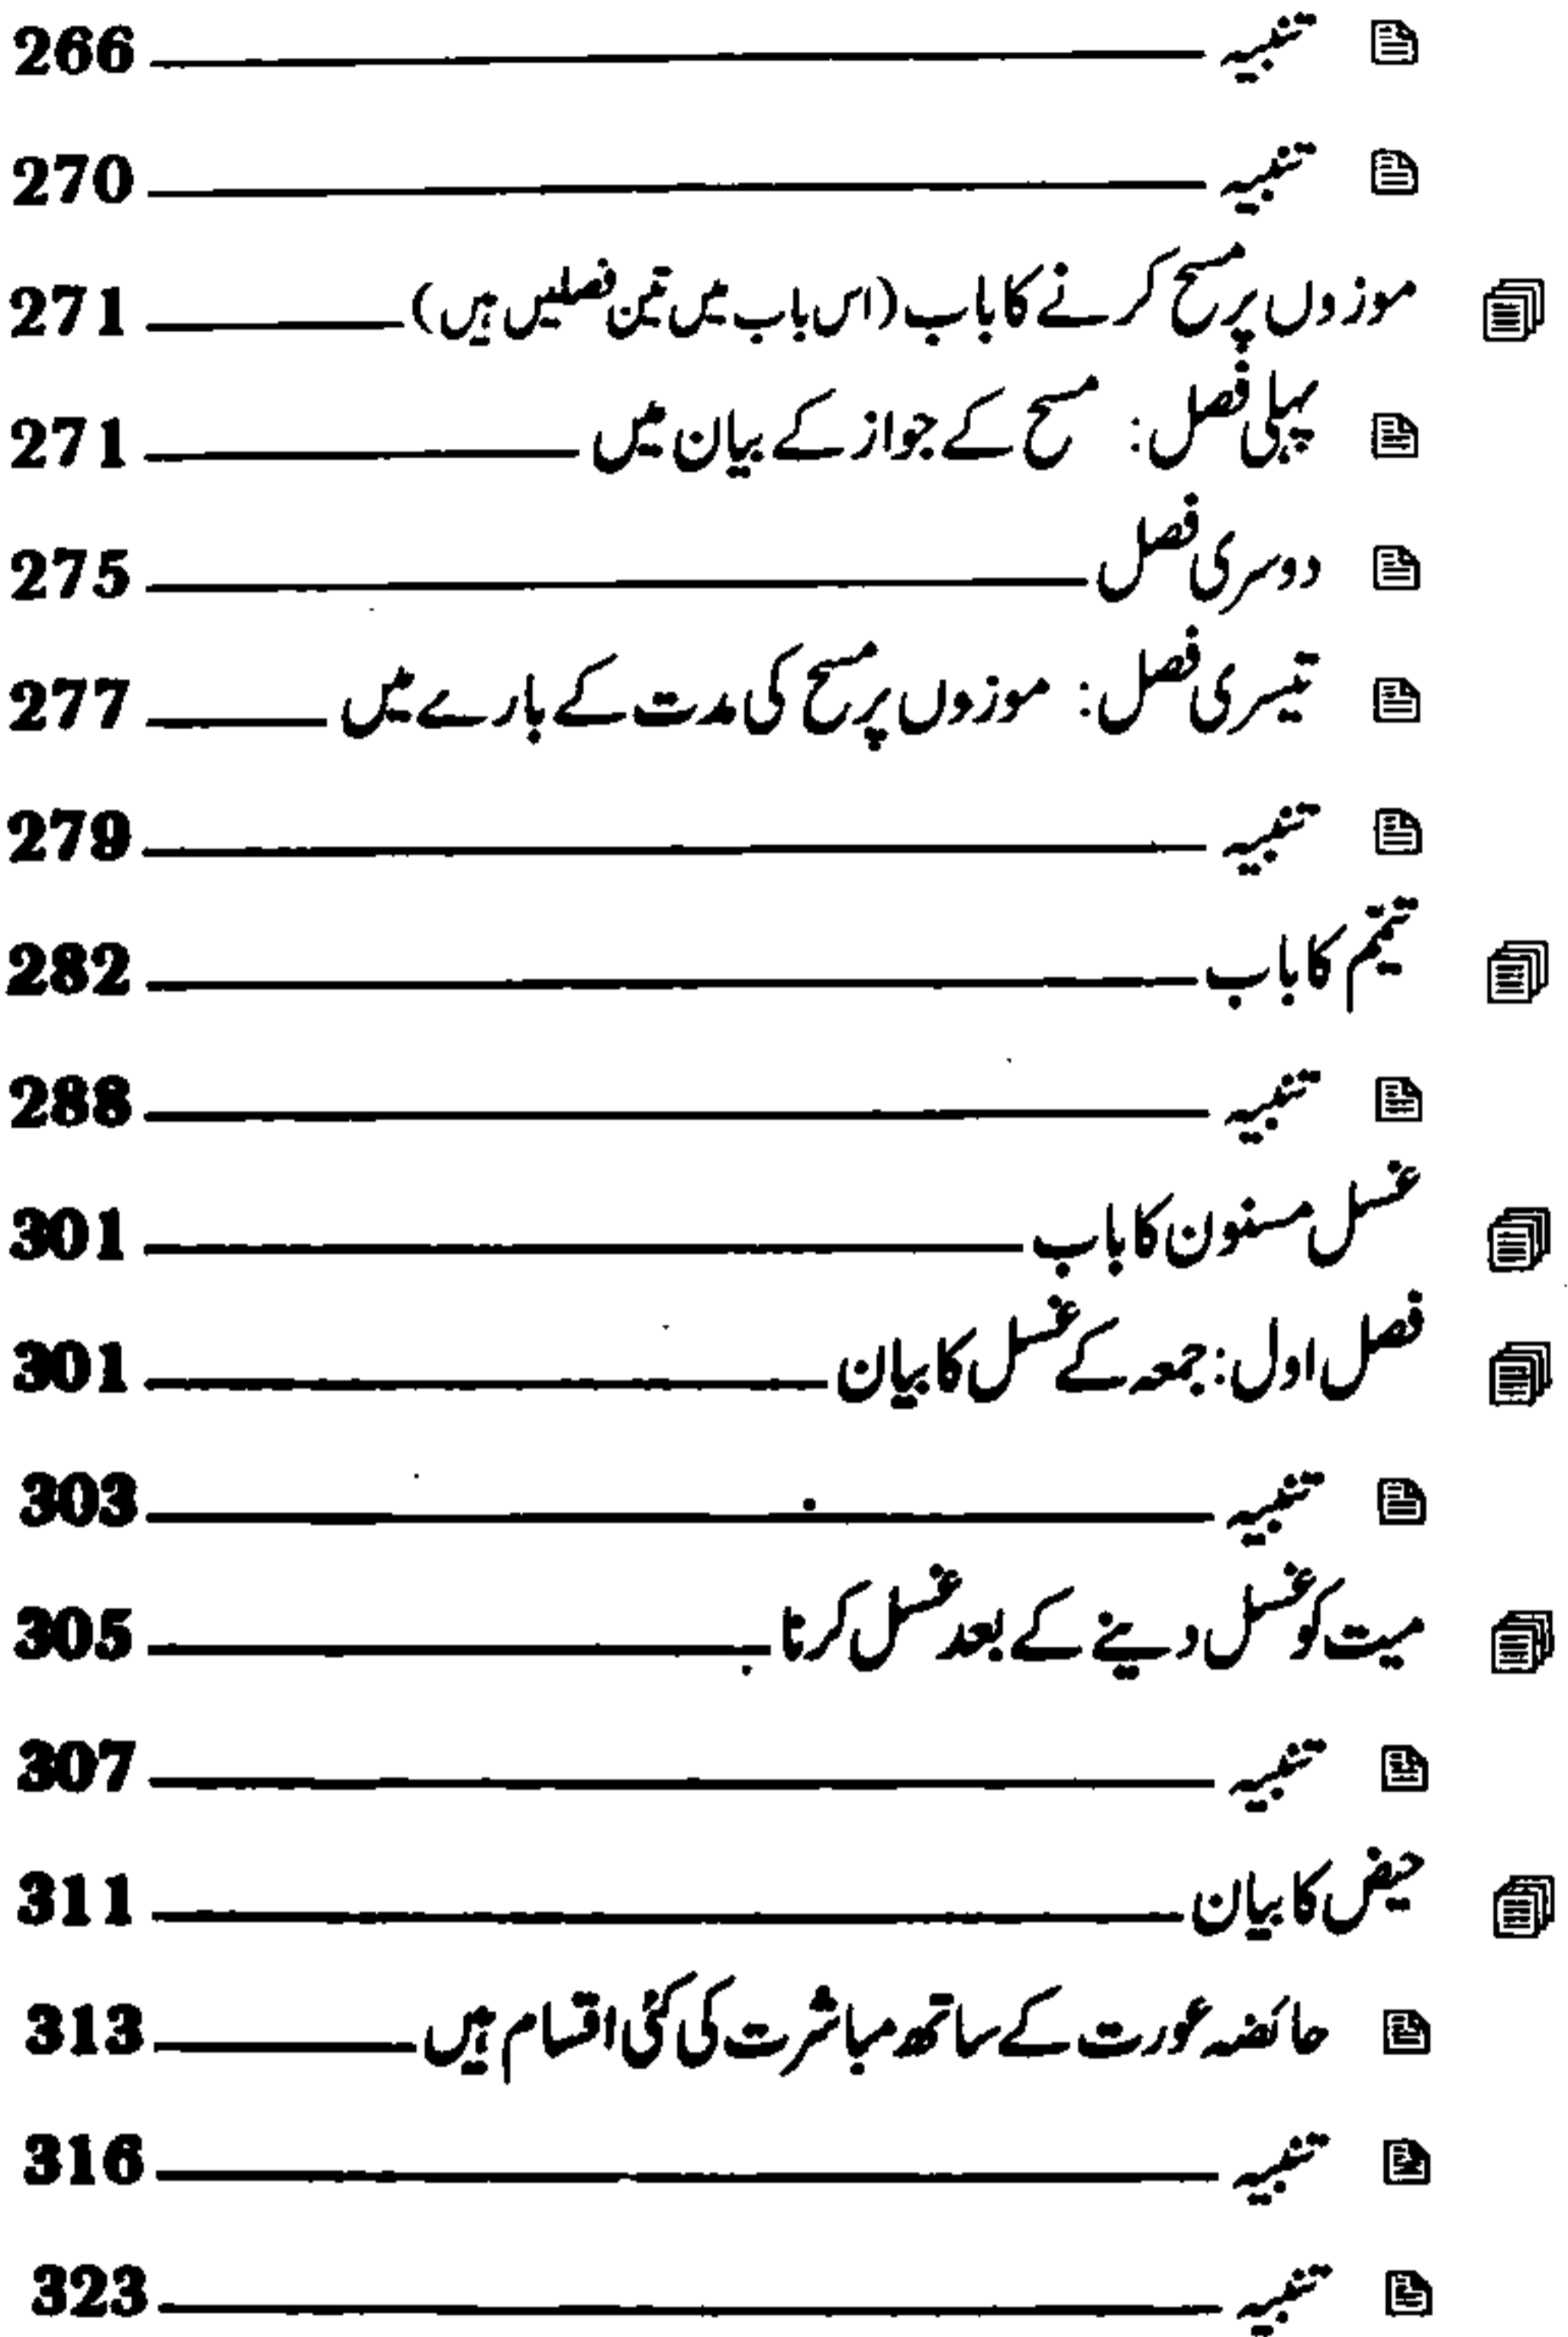 تنبیہ 266
تنبیہ 270
موزوں پر مسح کرنے کا باب (اس باب میں تین فصلیں ہیں) 271
پہلی فصل: مسح کے جواز کے بیان میں 271
دوسری فصل 275
تیسری فصل: موزوں پر مسح کی مدت کے بارے میں 277
تنبیہ 279
تیمّم کا باب 282
تنبیہ 288
غسل مسنون کا باب 301
فصل اول: جمعہ کے غسل کا بیان 301
تنبیہ 303
میت کو غسل دینے کے بعد غسل کرنا 305
تنبیہ 307
حیض کا بیان 311
حائضہ عورت کے ساتھ مباشرت کی کئی اقسام ہیں 313
تنبیہ 316
تنبیہ 323